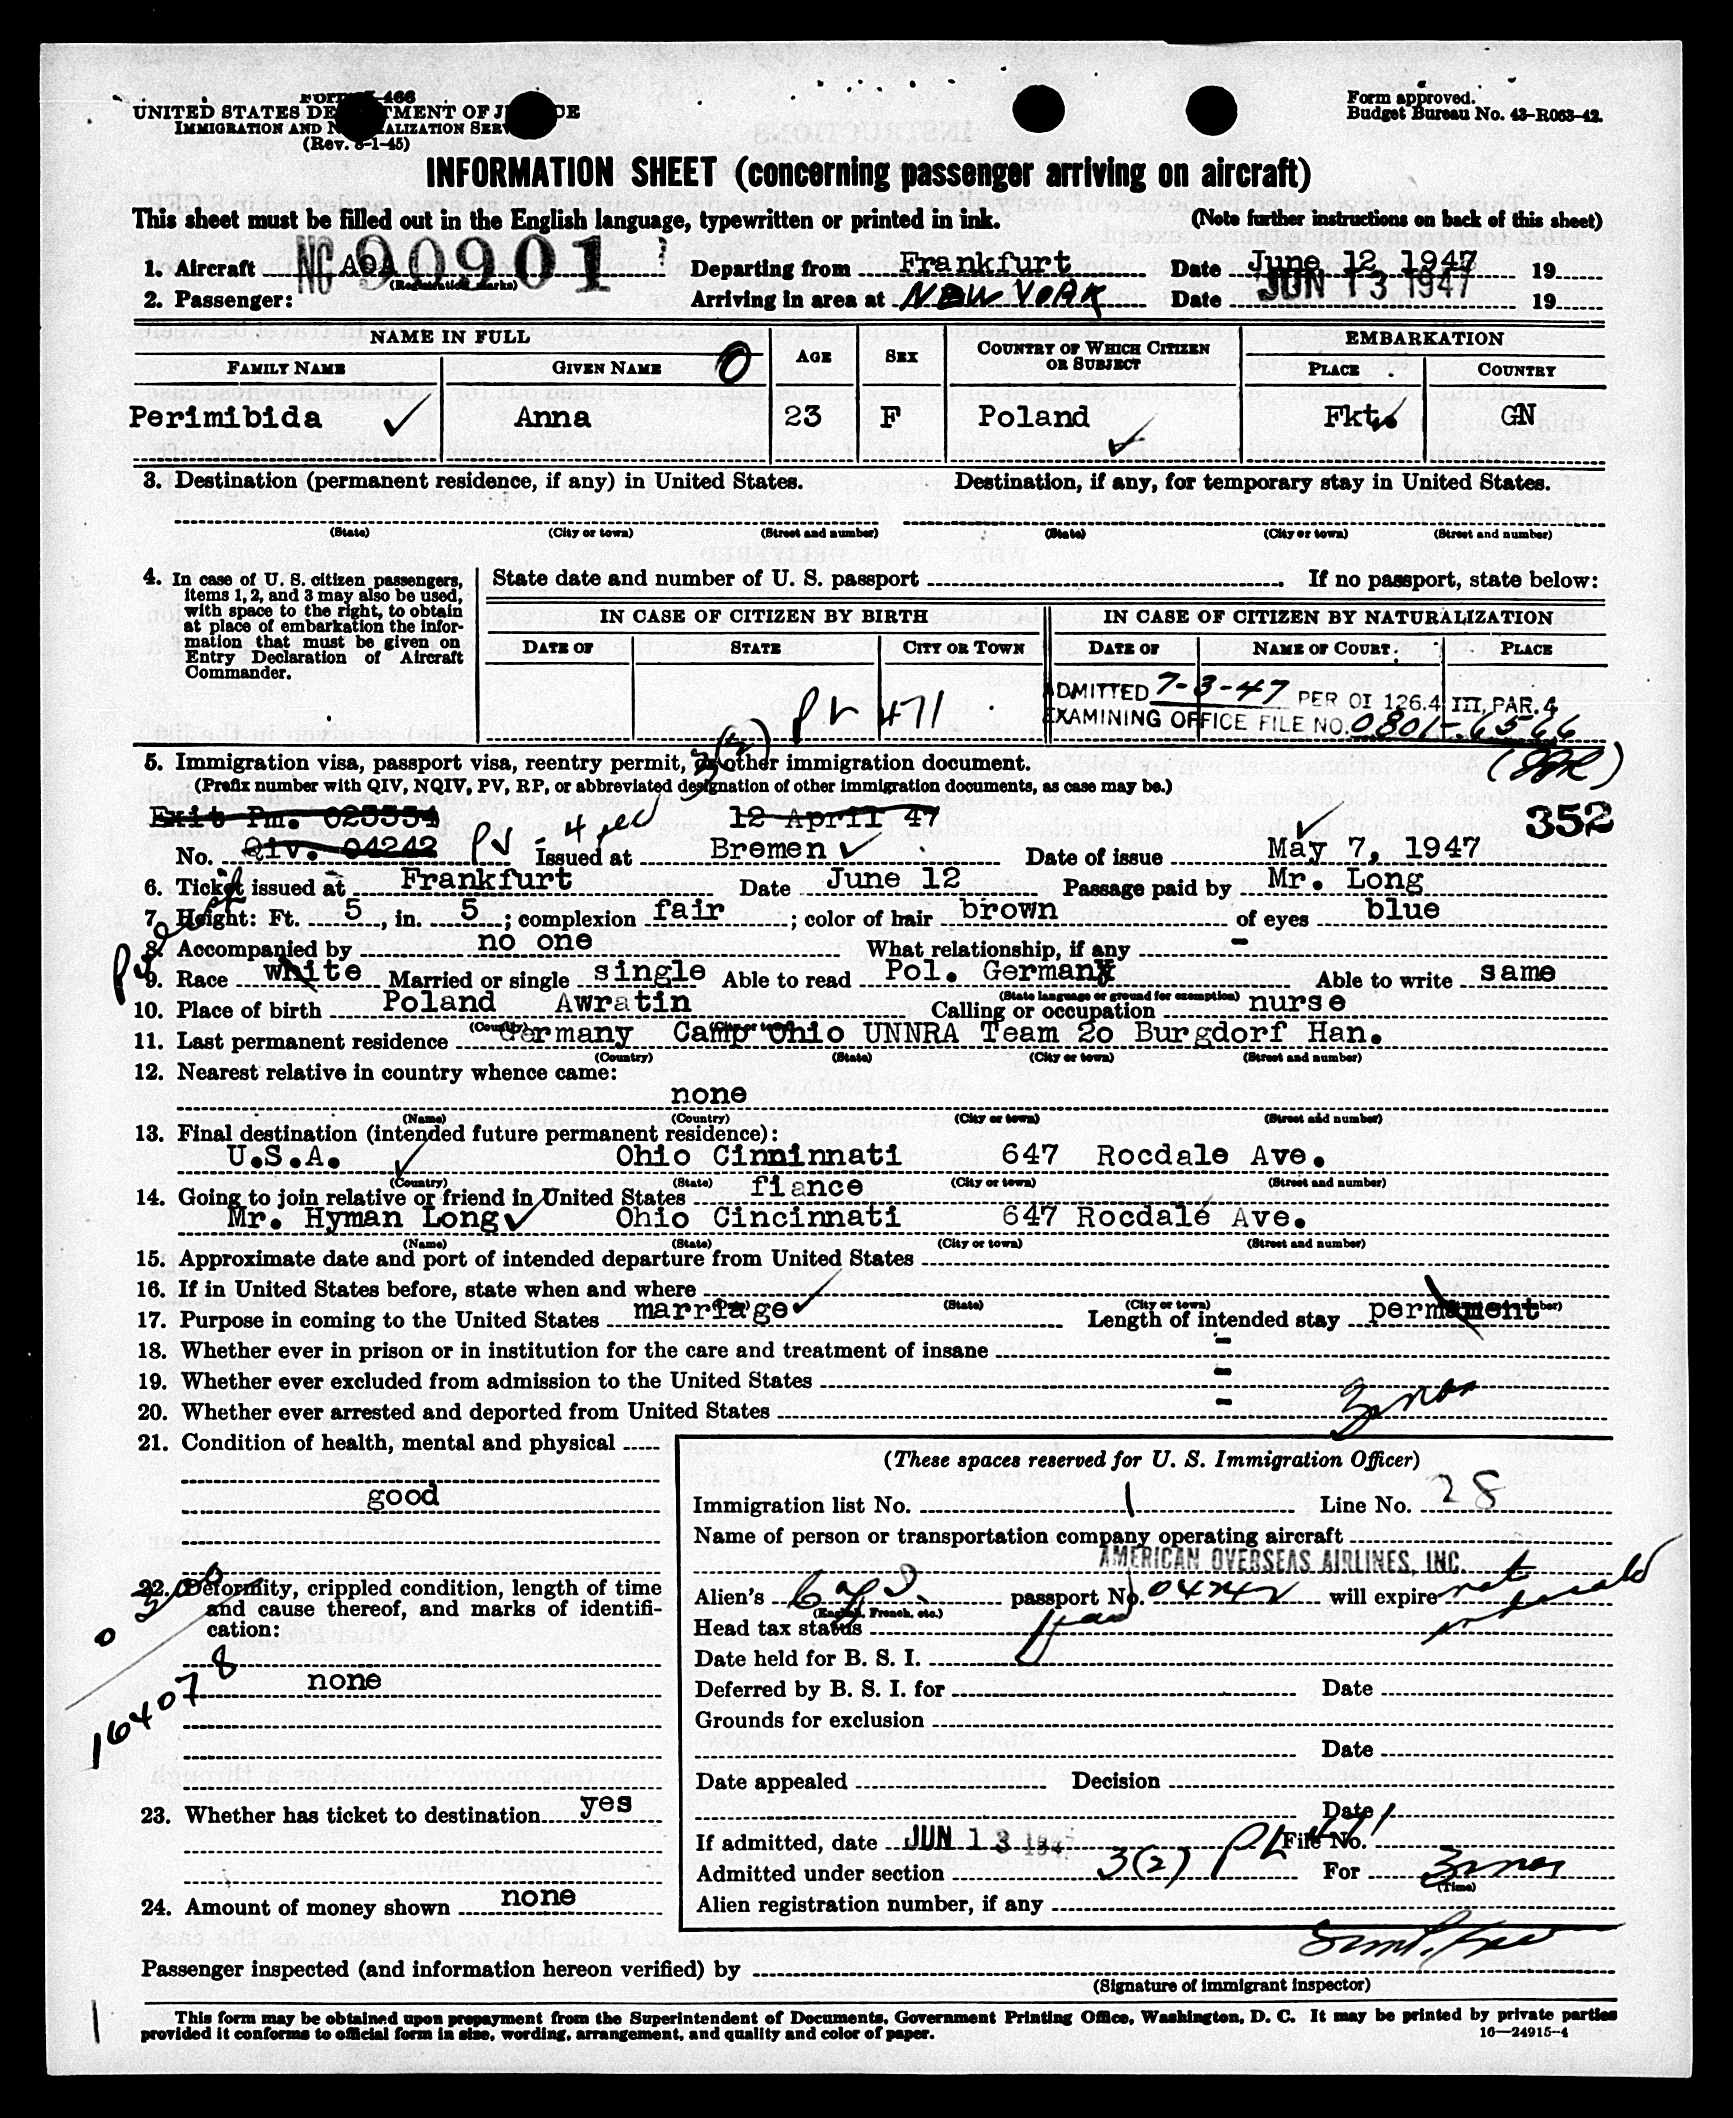 Form I-466
UNITED STATES DEPARTMENT OF JUSTICE
IMMIGRATION AND NATURALIZATION SERVICE
(Rev. 8-1-45)
Form approved.
Budget Bureau No. 43-R063-42.
INFORMATION SHEET (concerning passenger arriving on aircraft)
This sheet must be filled out in the English language, typewritten or printed in ink. (Note further instructions on back of this sheet)
1. Aircraft NC 90901 AOA (Registration marks) Departing from Frankfurt Date June 12 1947 19
2. Passenger: Arriving in area at NEW YORK Date JUN 13 1947 19
NAME IN FULL AGE SEX COUNTRY OF WHICH CITIZEN OR SUBJECT EMBARKATION
FAMILY NAME GIVEN NAME O PLACE COUNTRY
Perimibida Anna 23 F Poland Fkt. GN
3. Destination (permanent residence, if any) in United States. Destination, if any, for temporary stay in United States.
(State) (City or town) (Street and number) (State) (City or town) (Street and number)
4. In case of U. S. citizen passengers,
items 1, 2, and 3 may also be used,
with space to the right, to obtain
at place of embarkation the infor-
mation that must be given on
Entry Declaration of Aircraft
Commander.
State date and number of U. S. passport If no passport, state below:
IN CASE OF CITIZEN BY BIRTH IN CASE OF CITIZEN BY NATURALIZATION
DATE OF STATE CITY OR TOWN DATE OF NAME OF COURT PLACE
ADMITTED 7-3-47 PER OI 126.4 III, PAR. 4
PL 471 EXAMINING OFFICE FILE NO. 0801-6566
3(2)
5. Immigration visa, passport visa, reentry permit, or other immigration document.
(Prefix number with QIV, NQIV, PV, RP, or abbreviated designation of other immigration documents, as case may be.)
Exit Pm. 023554 12 April 47 352
No. Qiv. 04242 PV Issued at Bremen Date of issue May 7, 1947
6. Ticket issued at Frankfurt Date June 12 Passage paid by Mr. Long
7. Height: Ft. 5, in. 5; complexion fair; color of hair brown of eyes blue
8. Accompanied by no one What relationship, if any -
9. Race white Married or single single Able to read Pol. Germany Able to write same
(State language or ground for exemption)
10. Place of birth Poland Awratin Calling or occupation nurse
(Country) (City or town)
11. Last permanent residence Germany Camp Ohio UNNRA Team 2o Burgdorf Han.
(Country) (State) (City or town) (Street and number)
12. Nearest relative in country whence came:
none
(Name) (Country) (City or town) (Street and number)
13. Final destination (intended future permanent residence):
U.S.A. Ohio Cinninnati 647 Rocdale Ave.
(Country) (State) (City or town) (Street and number)
14. Going to join relative or friend in United States fiance
Mr. Hyman Long Ohio Cincinnati 647 Rocdale Ave.
(Name) (State) (City or town) (Street and number)
15. Approximate date and port of intended departure from United States
16. If in United States before, state when and where
(State) (City or town) (Street and number)
17. Purpose in coming to the United States marriage Length of intended stay permament
18. Whether ever in prison or in institution for the care and treatment of insane -
19. Whether ever excluded from admission to the United States -
20. Whether ever arrested and deported from United States -
3 mos
21. Condition of health, mental and physical
good
22. Deformity, crippled condition, length of time
and cause thereof, and marks of identifi-
cation:
none
164078
23. Whether has ticket to destination yes
24. Amount of money shown none
(These spaces reserved for U. S. Immigration Officer)
Immigration list No. 1 Line No. 28
Name of person or transportation company operating aircraft
AMERICAN OVERSEAS AIRLINES, INC.
Alien's passport No. 04242 will expire not
(English, French, etc.)
Head tax status
Date held for B. S. I.
Deferred by B. S. I. for Date
Grounds for exclusion
Date
Date appealed Decision
Date
If admitted, date JUN 13 1947 File No.
Admitted under section 3(2) PL 471 For 3 mos
(Time)
Alien registration number, if any
Passenger inspected (and information hereon verified) by
(Signature of immigrant inspector)
This form may be obtained upon prepayment from the Superintendent of Documents, Government Printing Office, Washington, D. C. It may be printed by private parties
provided it conforms to official form in size, wording, arrangement, and quality and color of paper. 16—24915-4